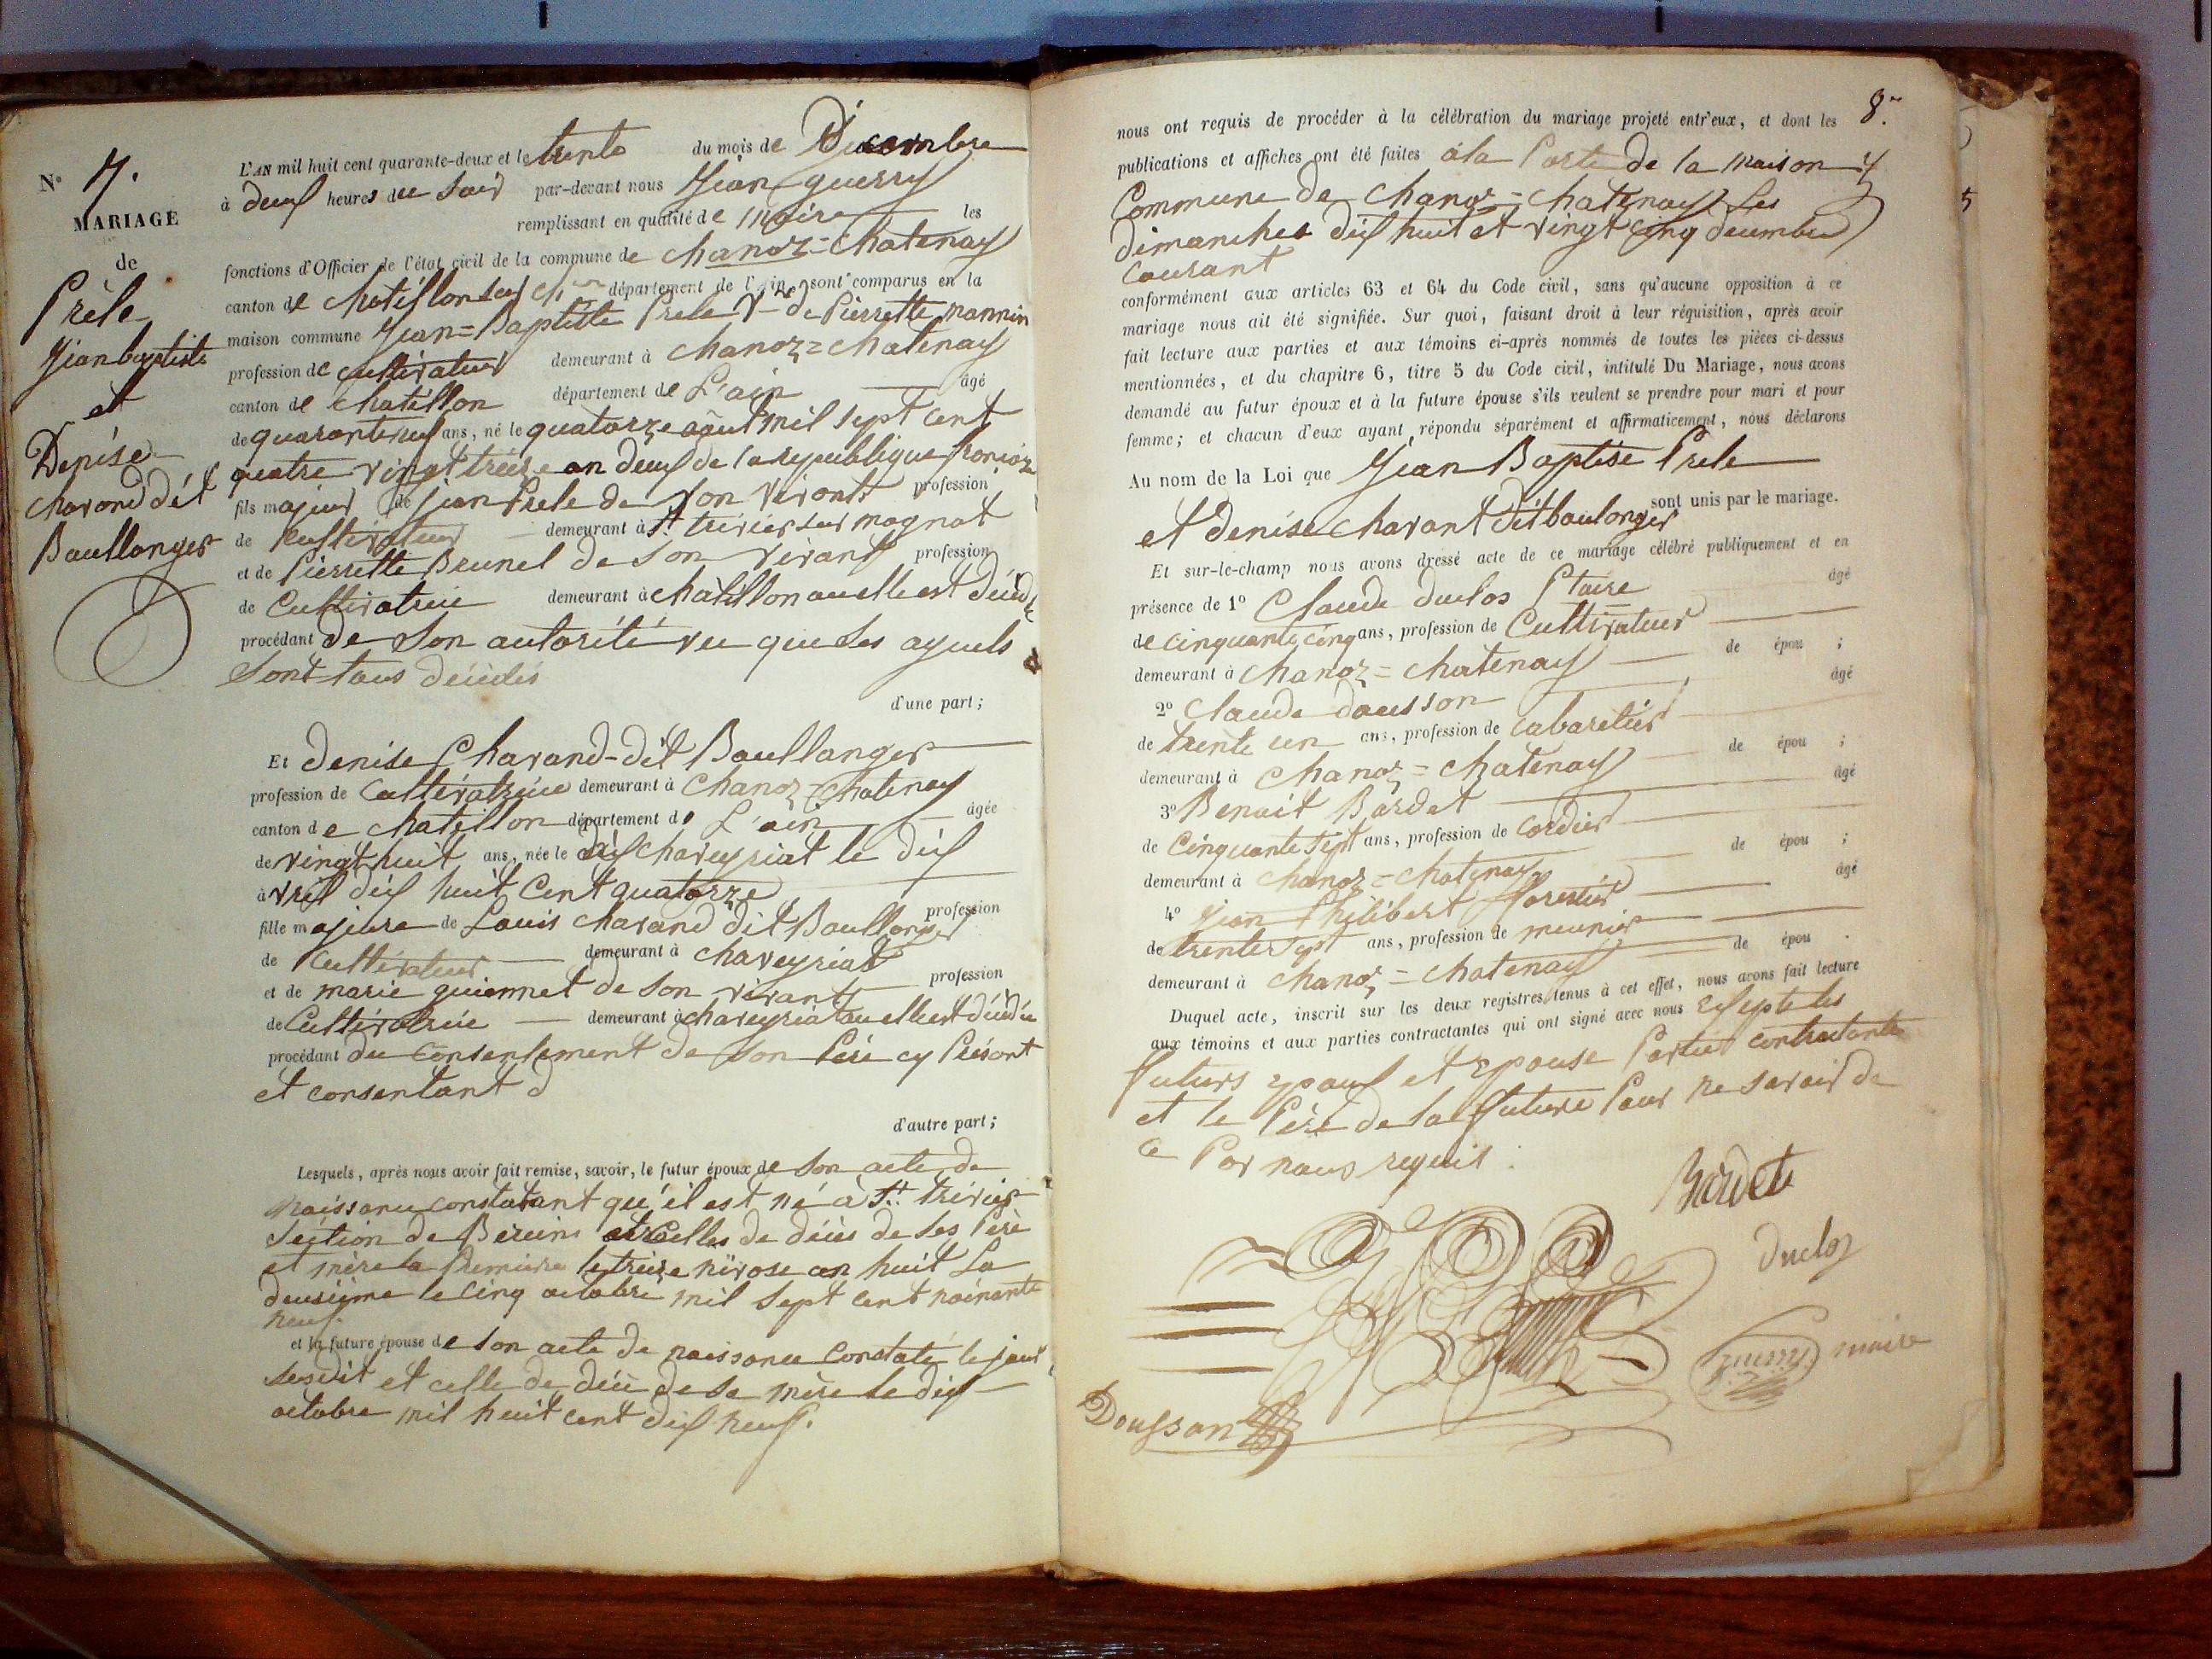 N° 7.
MARIAGE
de
Prèle
Jean baptiste
et
Denise
Chavand dit
Boullanger
L'AN mil huit cent quarante-deux et le trente du mois de Décembre
à deux heures du soir par-devant nous Jean guerry
remplissant en qualité de maire les
fonctions d'Officier de l'état civil de la commune de chanoz=chatenay
canton de chatillon sur département de l'ain sont comparus en la
maison commune Jean=Baptiste Prele Vf de Pierrette nannin
profession de cultivateur demeurant à chanoz=chatenay
canton de chatillon département de L'ain âgé
de quarante neuf ans, né le quatorze août mil sept cent
quatre vingt treize an deux de la republique
fils majeur de jean Prele de son vivant profession
de Cultivateur demeurant à St trivier sur mognat
et de Pierrette Brunel de son vivant profession
de Cultivatrice demeurant à chatillon ou elle est décéd
procédant de son autorité vu que ses ayuels
Sont tous décédés
d'une part;
Et denise Chavand-dit Boullanger
profession de Cultivatrice demeurant à Chanoz-Chatenay
canton de chatillon département de L'ain âgée
de vingt huit ans, née le à chaveyriat le dix
avril dix huit Cent quatorze
fille majeure de Louis chavand dit Boullonger profession
de Cultivateur demeurant à chaveyriat
et de marie guionnet de son vivant profession
de Cultivatrice demeurant à chaveyriat ou elle est décédée
procédant du Consentement de son Père cy Présant
et consentant d
d'autre part;
Lesquels, après nous avoir fait remise, savoir, le futur époux de son acte de
naissance constatant qu'il est né à St. trivier
section de Bereins et celles de décès de ses Père
et mère la Premiere le treize nivose an huit La
deusième le Cinq octobre mil sept cent nonante
neuf.
et la future épouse de son acte de naissance Constaté le jour
susdit et celle de décè de sa mère le dix
octobre mil huit cent dix neuf.
8.
nous ont requis de procéder à la célébration du mariage projeté entr'eux, et dont les
publications et affiches ont été faites à la Porte de la maison
Commune de Chanoz=chatenay Les
dimanches dix huit et vingt cinq décembre
Courant
conformément aux articles 63 et 64 du Code civil, sans qu'aucune opposition à ce
mariage nous ait été signifiée. Sur quoi, faisant droit à leur réquisition, après avoir
fait lecture aux parties et aux témoins ci-après nommés de toutes les pièces ci-dessus
mentionnées, et du chapitre 6, titre 5 du Code civil, intitulé Du Mariage, nous avons
demandé au futur époux et à la future épouse s'ils veulent se prendre pour mari et pour
femme; et chacun d'eux ayant répondu séparément et affirmativement, nous déclarons
Au nom de la Loi que Jean Baptise Prele
et denise chavant dit boulonger sont unis par le mariage.
Et sur-le-champ nous avons dressé acte de ce mariage célébré publiquement et en
présence de 1° Claude duclos Ptaire âgé
de cinquante cinq ans, profession de Cultivateur
demeurant à chanoz=chatenay de épou ;
2° Claude dousson âgé
de trente un ans, profession de cabaretier
demeurant à Chanoz=chatenay de épou ;
3° Benoit Bardet âgé
de Cinquante Sept ans, profession de cordier
demeurant à chanoz=chatenay de épou ;
4° jean Philibert forestier âgé
de trente sept ans, profession de meunier
demeurant à chanoz=chatenay de épou .
Duquel acte, inscrit sur les deux registres tenus à cet effet, nous avons fait lecture
aux témoins et aux parties contractantes qui ont signé avec nous Exsepté les
futurs epoux et Epouse Partie contractante
et le Père de la future Pour ne savoir de
ce Par nous requis.
Bardet
Duclos
maire
Dousson